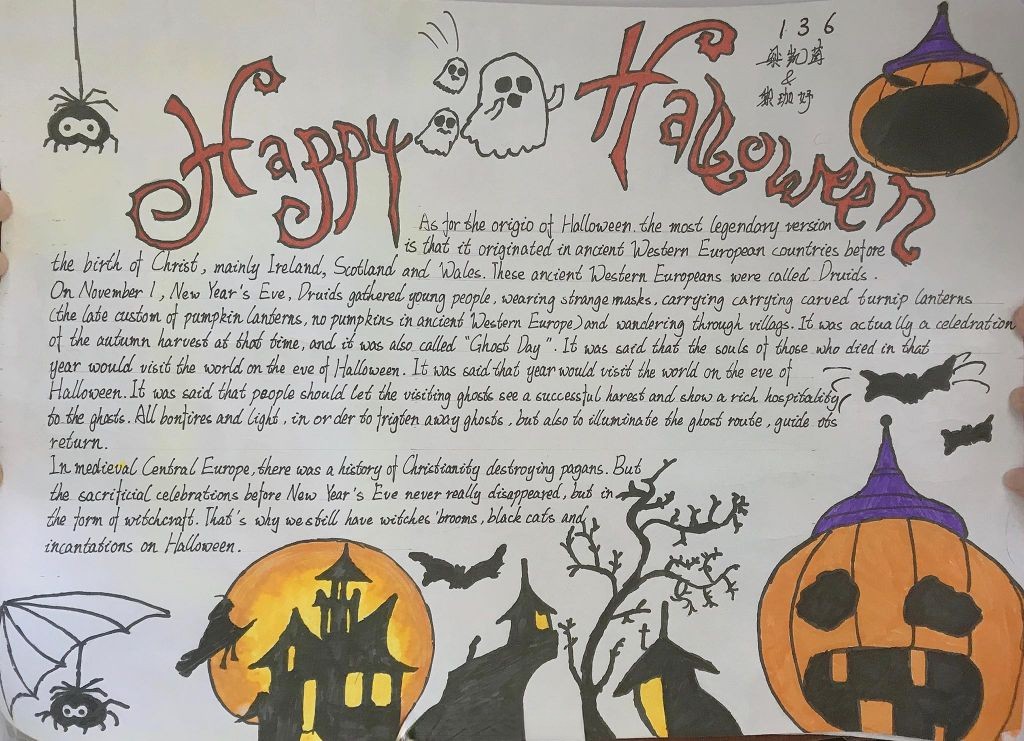 Happy Halloween
136
梁凯茵
&
珈妤
As for the origio of Halloween. the most legendary version
is that it originated in ancient Western European countries before
the birth of Christ, mainly Ireland, Scotland and Wales. These ancient Western Europeans were called Druids.
On November 1, New Year's Eve, Druids gathered young people, wearing strange masks, carrying carrying carved turnip lanterns
(the late custom of pumpkin lanterns, no pumpkins in ancient Western Europe) and wandering through villags. It was actually a celedration
of the autumn harvest at that time, and it was also called "Ghost Day". It was said that the souls of those who died in that
year would visit the world on the eve of Halloween. It was said that year would visit the world on the eve of
Halloween. It was said that people should let the visiting ghosts see a successful harest and show a rich hospitality
to the ghosts. All bonfires and light, in or der to frigten away ghosts, but also to illuminate the ghost route, guide ots
return.
In medieval Central Europe, there was a history of Christianity destroying pagans. But
the sacrificial celebrations before New Year's Eve never really disappeared, but in
the form of witchcraft. That's why we still have witches' brooms, black cats and
incantations on Halloween.